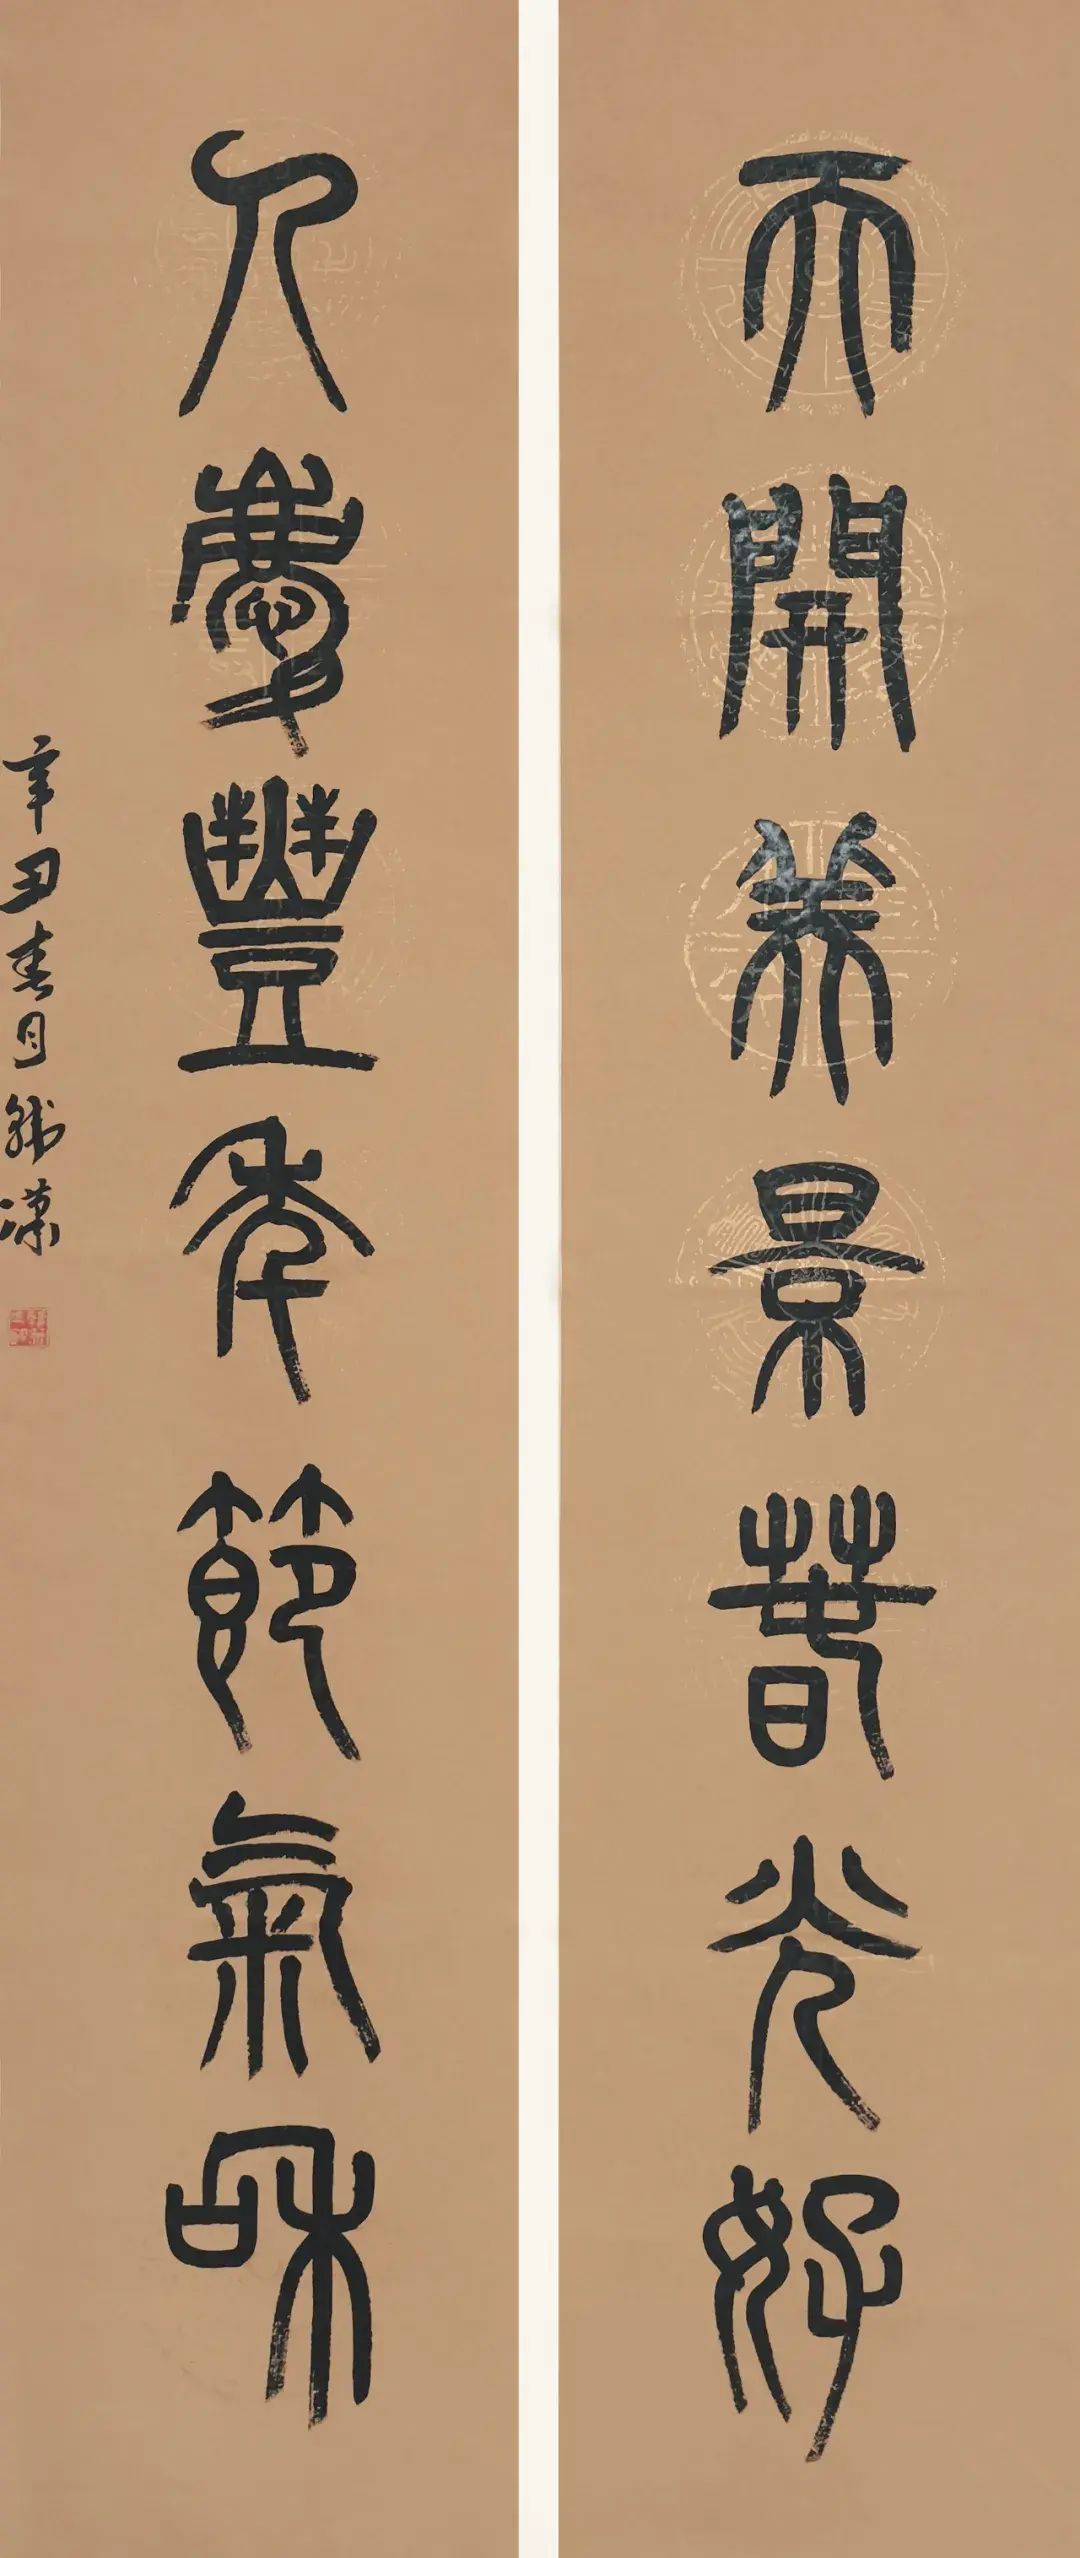 天開美景春光好
人慶豐年節氣和
辛丑春月